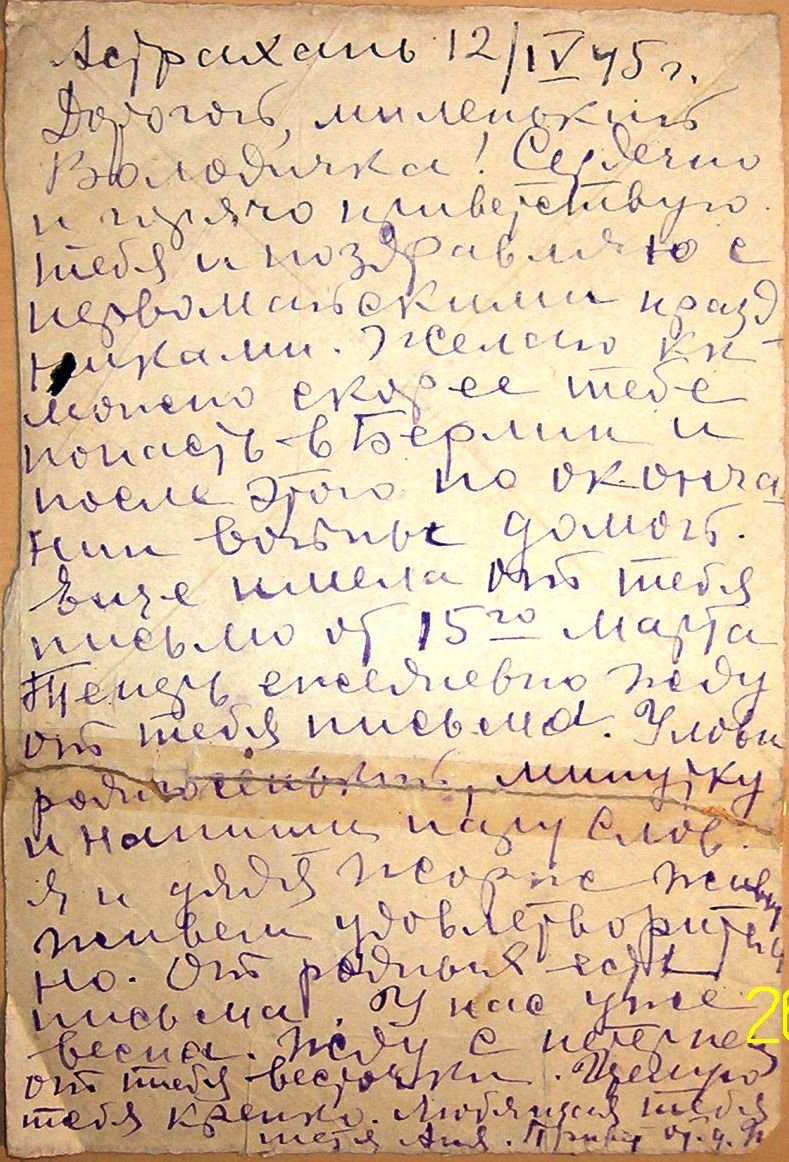 Астрахань 12/IV 45 г.
Дорогой, миленький
Володичка! Сердечно
и горячо приветствую
тебя и поздравляю с
первомайскими празд-
никами. Желаю кк
можно скорее тебе
попасть в Берлин и
после этого по оконча
нии войны домой.
Еще имела от тебя
письмо от 15го марта
Теперь ежедневно жду
от тебя письма. Улови
родносенький, минутку
и напиши пару слов.
Я и дядя Жорж
живем удовлетворитель
но. От родных есть
письма. У нас уже
весна. Жду с нетерпен
от тебя весточки. Целую
тебя крепко. Любящая тебя
тетя Аня. Привет от д. Ж
26